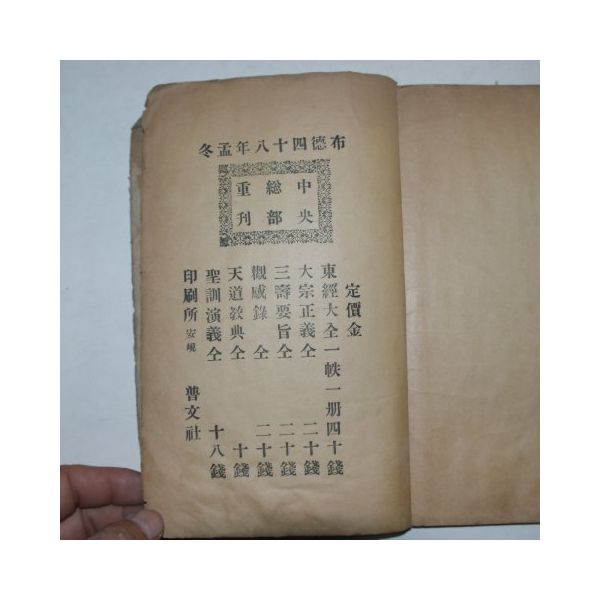 布德四十八年孟冬
中央
総部
重刊
定價金
東經大全一帙一册四十錢
大宗正義仝 二十錢
三壽要旨仝 二十錢
觀感錄 仝 二十錢
天道敎典仝 十錢
聖訓演義仝 十八錢
印刷所 安峴 普文社